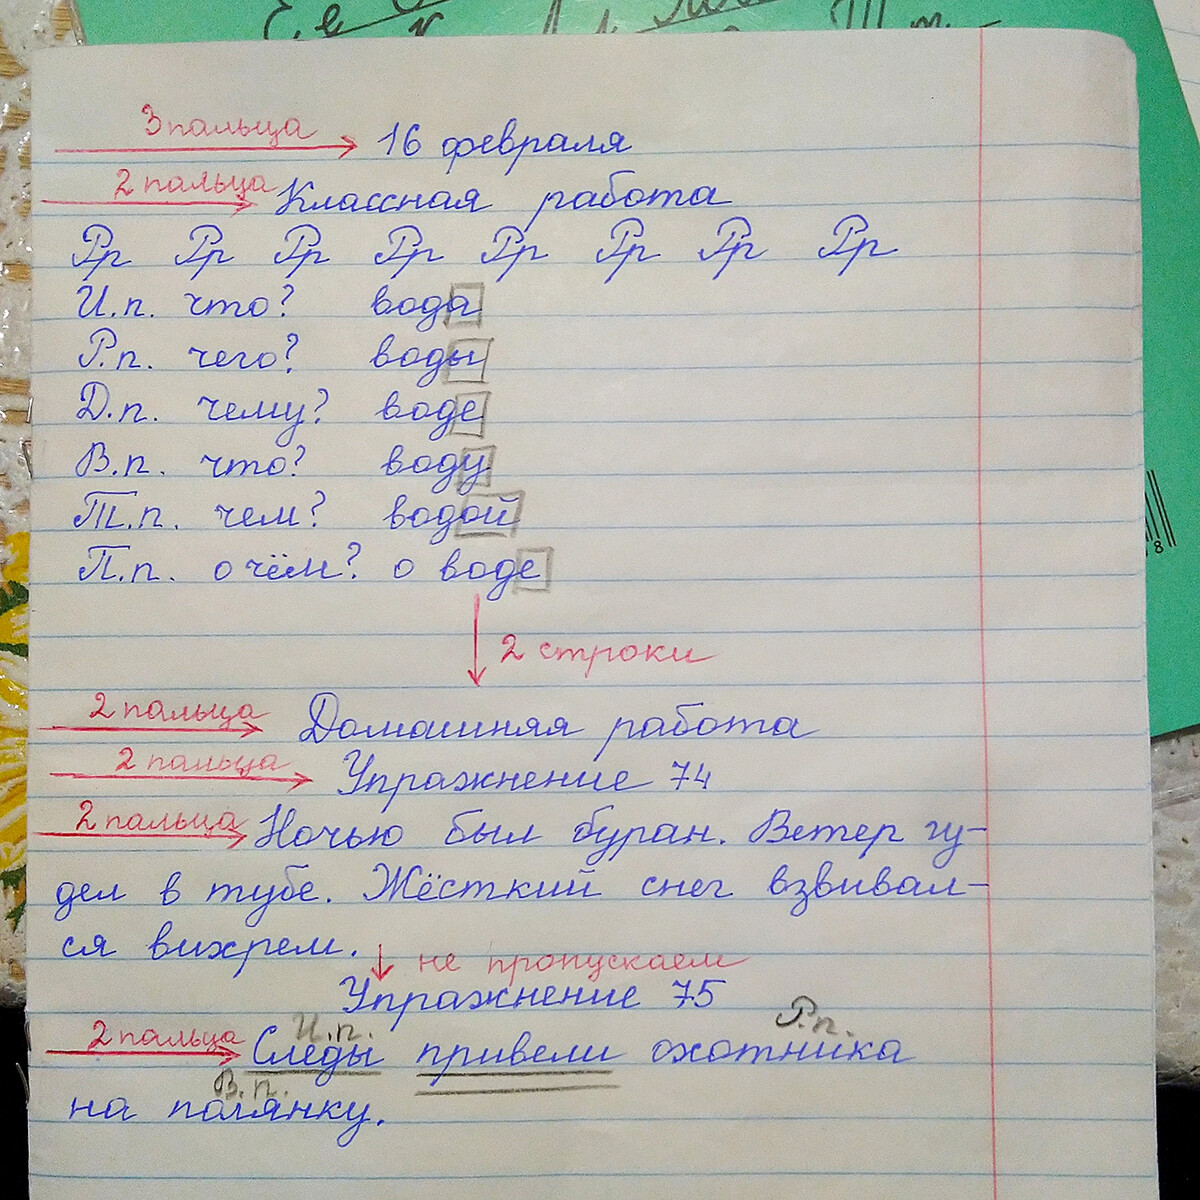 Ее
Тт
3 пальца
16 февраля
2 пальца
Классная работа
Рр Рр Рр Рр Рр Рр Рр Рр
И.п. что? вода
Р.п. чего? воды
Д.п. чему? воде
В.п. что? воду
Т.п. чем? водой
П.п. о чём? о воде
2 строки
2 пальца
Домашняя работа
2 пальца
Упражнение 74
2 пальца
Ночью был буран. Ветер гу-
дел в тубе. Жёсткий снег взвивал-
ся вихрем.
не пропускаем
Упражнение 75
И.п. Р.п.
2 пальца
Следы привели охотника
В.п.
на полянку.
8